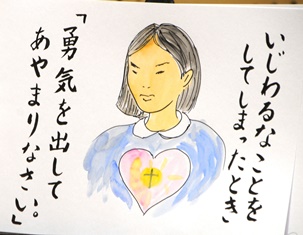 いじわるなことを
してしまったとき
「勇気を出して
あやまりなさい。」